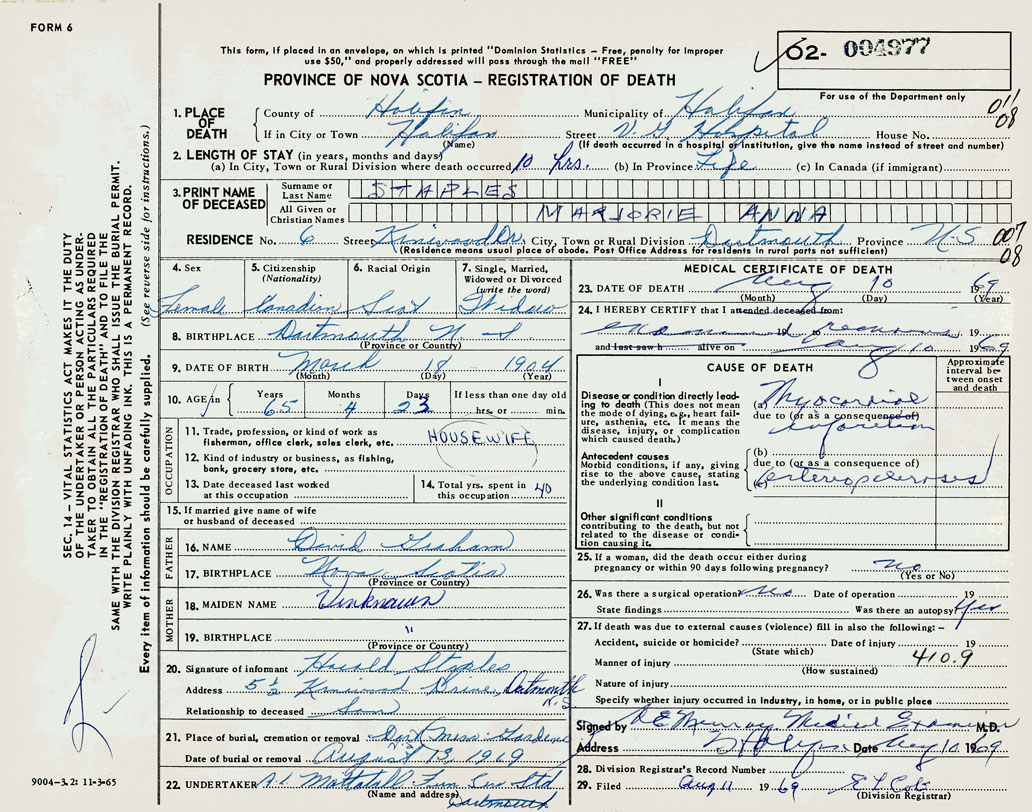 FORM 6
This form, if placed in an envelope, on which is printed "Dominion Statistics – Free, penalty for improper
use $50," and properly addressed will pass through the mail "FREE"
O2- 004977
PROVINCE OF NOVA SCOTIA – REGISTRATION OF DEATH
For use of the Department only
011
08
1. PLACE OF DEATH
County of Halifax Municipality of Halifax
If in City or Town Halifax Street V.G. Hospital House No.
(Name) (If death occurred in a hospital or institution, give the name instead of street and number)
2. LENGTH OF STAY (in years, months and days)
(a) In City, Town or Rural Division where death occurred 10 hrs. (b) In Province Life (c) In Canada (if immigrant)
3. PRINT NAME OF DECEASED
Surname or Last Name STAPLES
All Given or Christian Names MARJORIE ANNA
RESIDENCE No. 6 Street Kinwood Dr. City, Town or Rural Division Dartmouth Province N.S
(Residence means usual place of abode. Post Office Address for residents in rural parts not sufficient)
007
08
4. Sex
Female
5. Citizenship
(Nationality)
Canadian
6. Racial Origin
Scot
7. Single, Married,
Widowed or Divorced
(write the word)
Widow
8. BIRTHPLACE Dartmouth N. S
(Province or Country)
9. DATE OF BIRTH March 18 1904
(Month) (Day) (Year)
10. AGE in
Years Months Days If less than one day old
65 4 23 hrs. or min.
OCCUPATION
11. Trade, profession, or kind of work as
fisherman, office clerk, sales clerk, etc. HOUSEWIFE
12. Kind of industry or business, as fishing,
bank, grocery store, etc.
13. Date deceased last worked
at this occupation
14. Total yrs. spent in
this occupation 40
15. If married give name of wife
or husband of deceased
FATHER
16. NAME David Graham
17. BIRTHPLACE Nova Scotia
(Province or Country)
MOTHER
18. MAIDEN NAME Unknown
19. BIRTHPLACE "
(Province or Country)
20. Signature of informant Harold Staples
Address 5 1/2 Kinwood Drive, Dartmouth
N.S.
Relationship to deceased Son
21. Place of burial, cremation or removal Dart Mem. Gardens
N.S.
Date of burial or removal August 13, 1969
22. UNDERTAKER A.L Mattatall Fun Ser Ltd
(Name and address)
Dartmouth
MEDICAL CERTIFICATE OF DEATH
23. DATE OF DEATH Aug 10 1969
(Month) (Day) (Year)
24. I HEREBY CERTIFY that I attended deceased from:
19 to 19
and last saw h alive on Aug 10 1969
CAUSE OF DEATH
Approximate
interval be-
tween onset
and death
I
Disease or condition directly lead-
ing to death (This does not
mean the mode of dying, e.g., heart fail-
ure, asthenia, etc. It means the
disease, injury, or complication
which caused death.)
(a) Myocardial
due to (or as a consequence of)
infarction
Antecedent causes
Morbid conditions, if any, giving
rise to the above cause, stating
the underlying condition last.
(b)
due to (or as a consequence of)
(c) arteriosclerosis
II
Other significant conditions
contributing to the death, but not
related to the disease or condi-
tion causing it.
25. If a woman, did the death occur either during
pregnancy or within 90 days following pregnancy? no
(Yes or No)
26. Was there a surgical operation? no Date of operation 19
State findings Was there an autopsy? Yes
27. If death was due to external causes (violence) fill in also the following: –
Accident, suicide or homicide? Date of injury 19
(State which)
410.9
Manner of injury
(How sustained)
Nature of injury
Specify whether injury occurred in Industry, in home, or in public place
Signed by Murray Medical Examiner M.D.
Address Date Aug 10 1969
28. Division Registrar's Record Number
29. Filed Aug 11 1969
(Division Registrar)
SEC. 14 – VITAL STATISTICS ACT MAKES IT THE DUTY
OF THE UNDERTAKER OR PERSON ACTING AS UNDER-
TAKER TO OBTAIN ALL THE PARTICULARS REQUIRED
IN THE "REGISTRATION OF DEATH" AND TO FILE THE
SAME WITH THE DIVISION REGISTRAR WHO SHALL ISSUE THE BURIAL PERMIT.
WRITE PLAINLY WITH UNFADING INK. THIS IS A PERMANENT RECORD.
Every item of information should be carefully supplied. (See reverse side for instructions.)
9004-3.2: 11-3-65